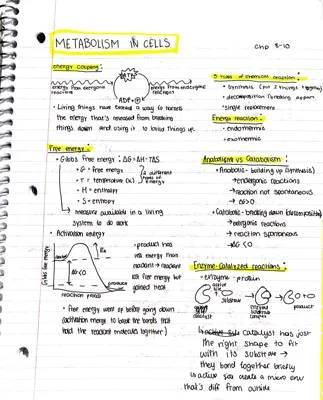 METABOLISM IN CELLS
Chp 8-10
energy coupling:
ATP
energy from exergonic reactions
energy from endergonic reactions
ADP + P
• Living things have evolved a way to harness
the energy that's released from breaking
things down and using it to build things up.
Free energy:
• Gibbs Free energy : ΔG=ΔH-TΔS
• G = free energy
• T = temperature (K)
• H = enthalpy
• S = entropy
2 different types of energy
→ measure available in a living
system to do work
• Activation energy
Gibbs free energy
Ea
ΔG<0
reactant
products
reaction prog
• product has
less energy than
reactant → reactant
lost free energy but
gained heat
• free energy went up before going down
(activation energy to break the bonds that
hold the reactant molecules together)
3 types of chemical reaction:
• synthesis
• decomposition
• single replacement
Energy reaction:
• endothermic
• exothermic
Anabolism vs Catabolism:
• Anabolic - building up (synthesis)
→ endergonic reactions
→ reaction not spontaneous
→ ΔG>0
• Catabolic - breaking down (decomposition)
→ exergonic reactions
→ reaction spontaneous
→ ΔG<0
Enzyme-Catalyzed reactions:
• enzyme - protein
active site
substrate
product
catalyst
enzyme substrate complex
Catalyst has just
the right shape to fit
with its substrate →
they bond together briefly
↳ active site creates a micro env
that's diff from outside